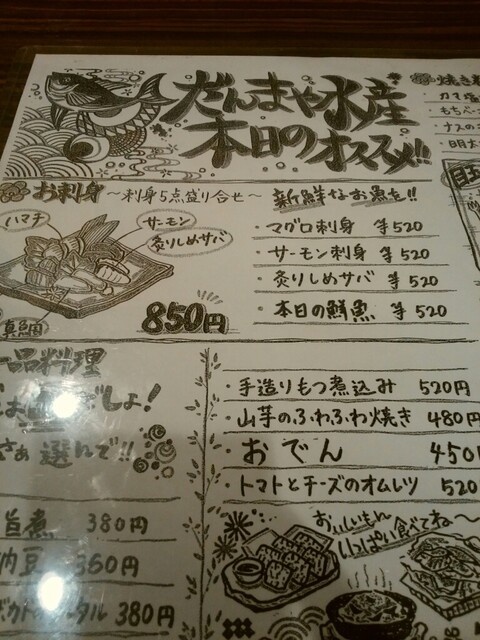 だんまや水産
本日のオススメ!!
お刺身 〜刺身5点盛り合せ〜
ハマチ
サーモン
炙りしめサバ
真鯛
850円
新鮮なお魚を!!
・マグロ刺身 等520
・サーモン刺身 等520
・炙りしめサバ 等520
・本日の鮮魚 等520
一品料理
でしょ!
さぁ 選んで!!
旨煮 380円
納豆 360円
タル 380円
・手造りもつ煮込み 520円
・山芋のふわふわ焼き 480円
・おでん 450
・トマトとチーズのオムレツ 520
おいしいもん
いっぱい食べてね〜
焼き
・もちベー
・ナスの
・明太